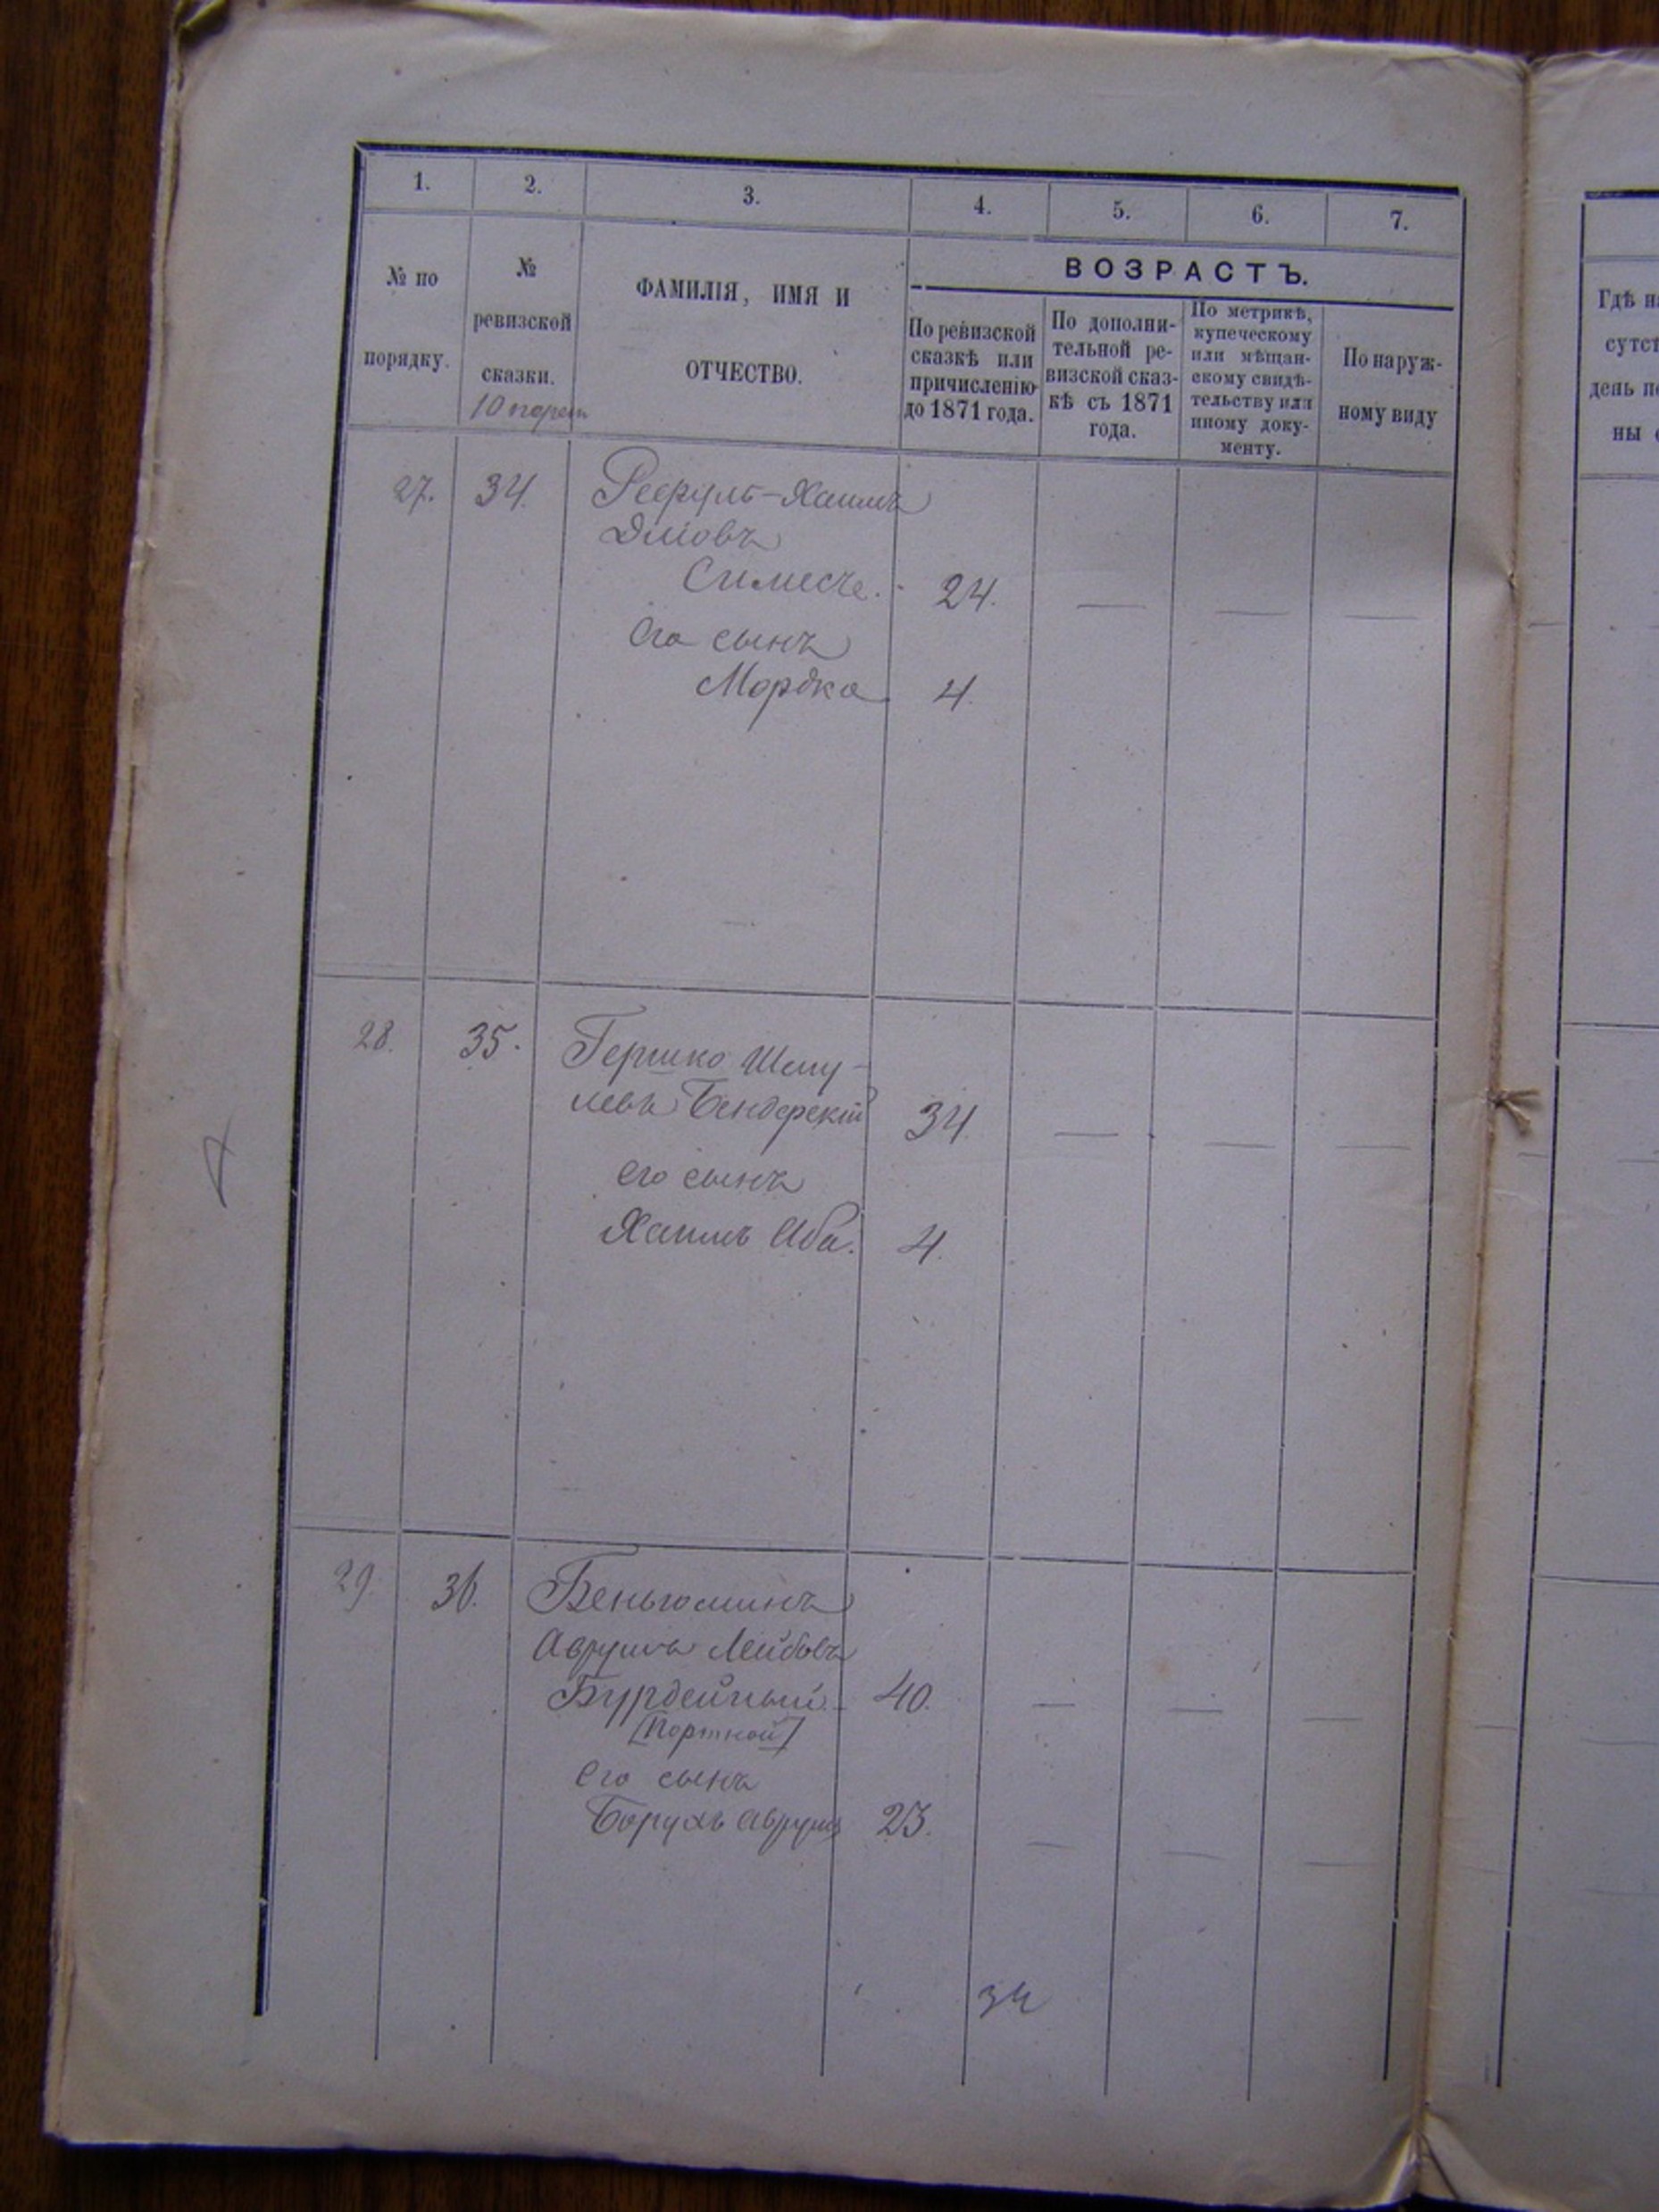 1. 2. 3. 4. 5. 6. 7.
№ по порядку.
№ ревизской сказки.
10 народ
ФАМИЛІЯ, ИМЯ И
ОТЧЕСТВО.
ВОЗРАСТЪ.
По ревизской
сказкѣ или
причисленію
до 1871 года.
По дополни-
тельной ре-
визской сказ-
кѣ съ 1871
года.
По метрикѣ,
купеческому
или мѣщан-
скому свидѣ-
тельству или
иному доку-
менту.
По наруж-
ному виду
Гдѣ
сутст
день
ны
27. 34. Хаимъ
24. — — —
Его сынъ
Мордко 4.
28. 35. Гершко Шму-
левъ Бендерскій 34. — — —
его сынъ
Хаимъ Аба. 4.
29. 36. Беньюминъ
Аврумъ Лейбовъ
Бурдейный 40. — — —
[Портной]
его сынъ
Борухъ Аврумъ 23. — — —
34